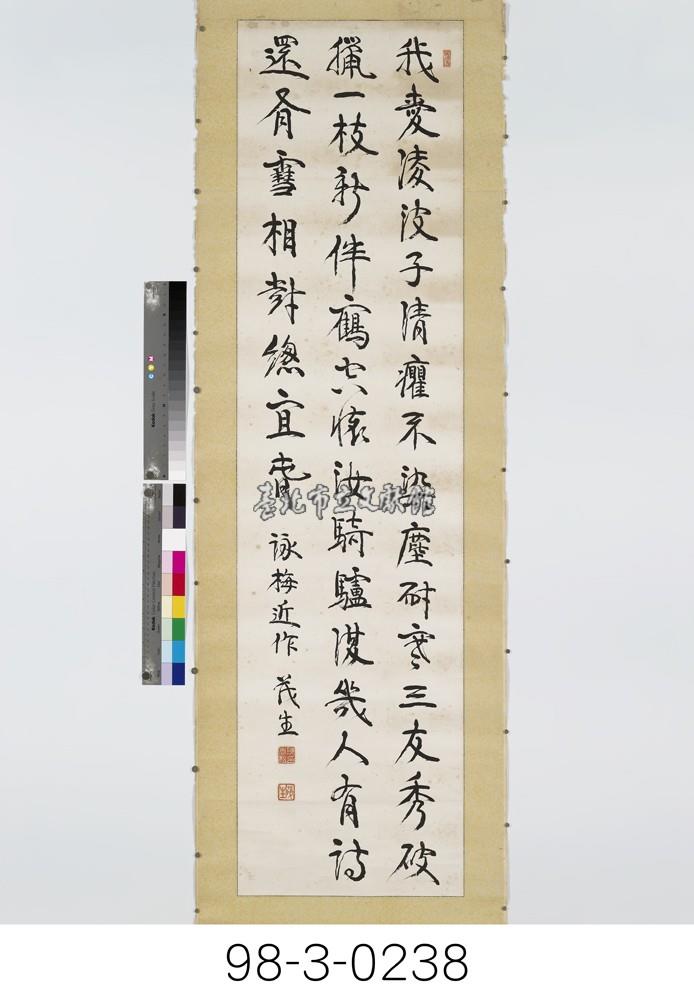 我愛淩波子清癯不染塵耐寒三友秀破
臘一枝新伴鶴空懷汝騎驢復幾人有詩
還有雪相對總宜春
詠梅近作 茂生
臺北市立文獻館
98-3-0238